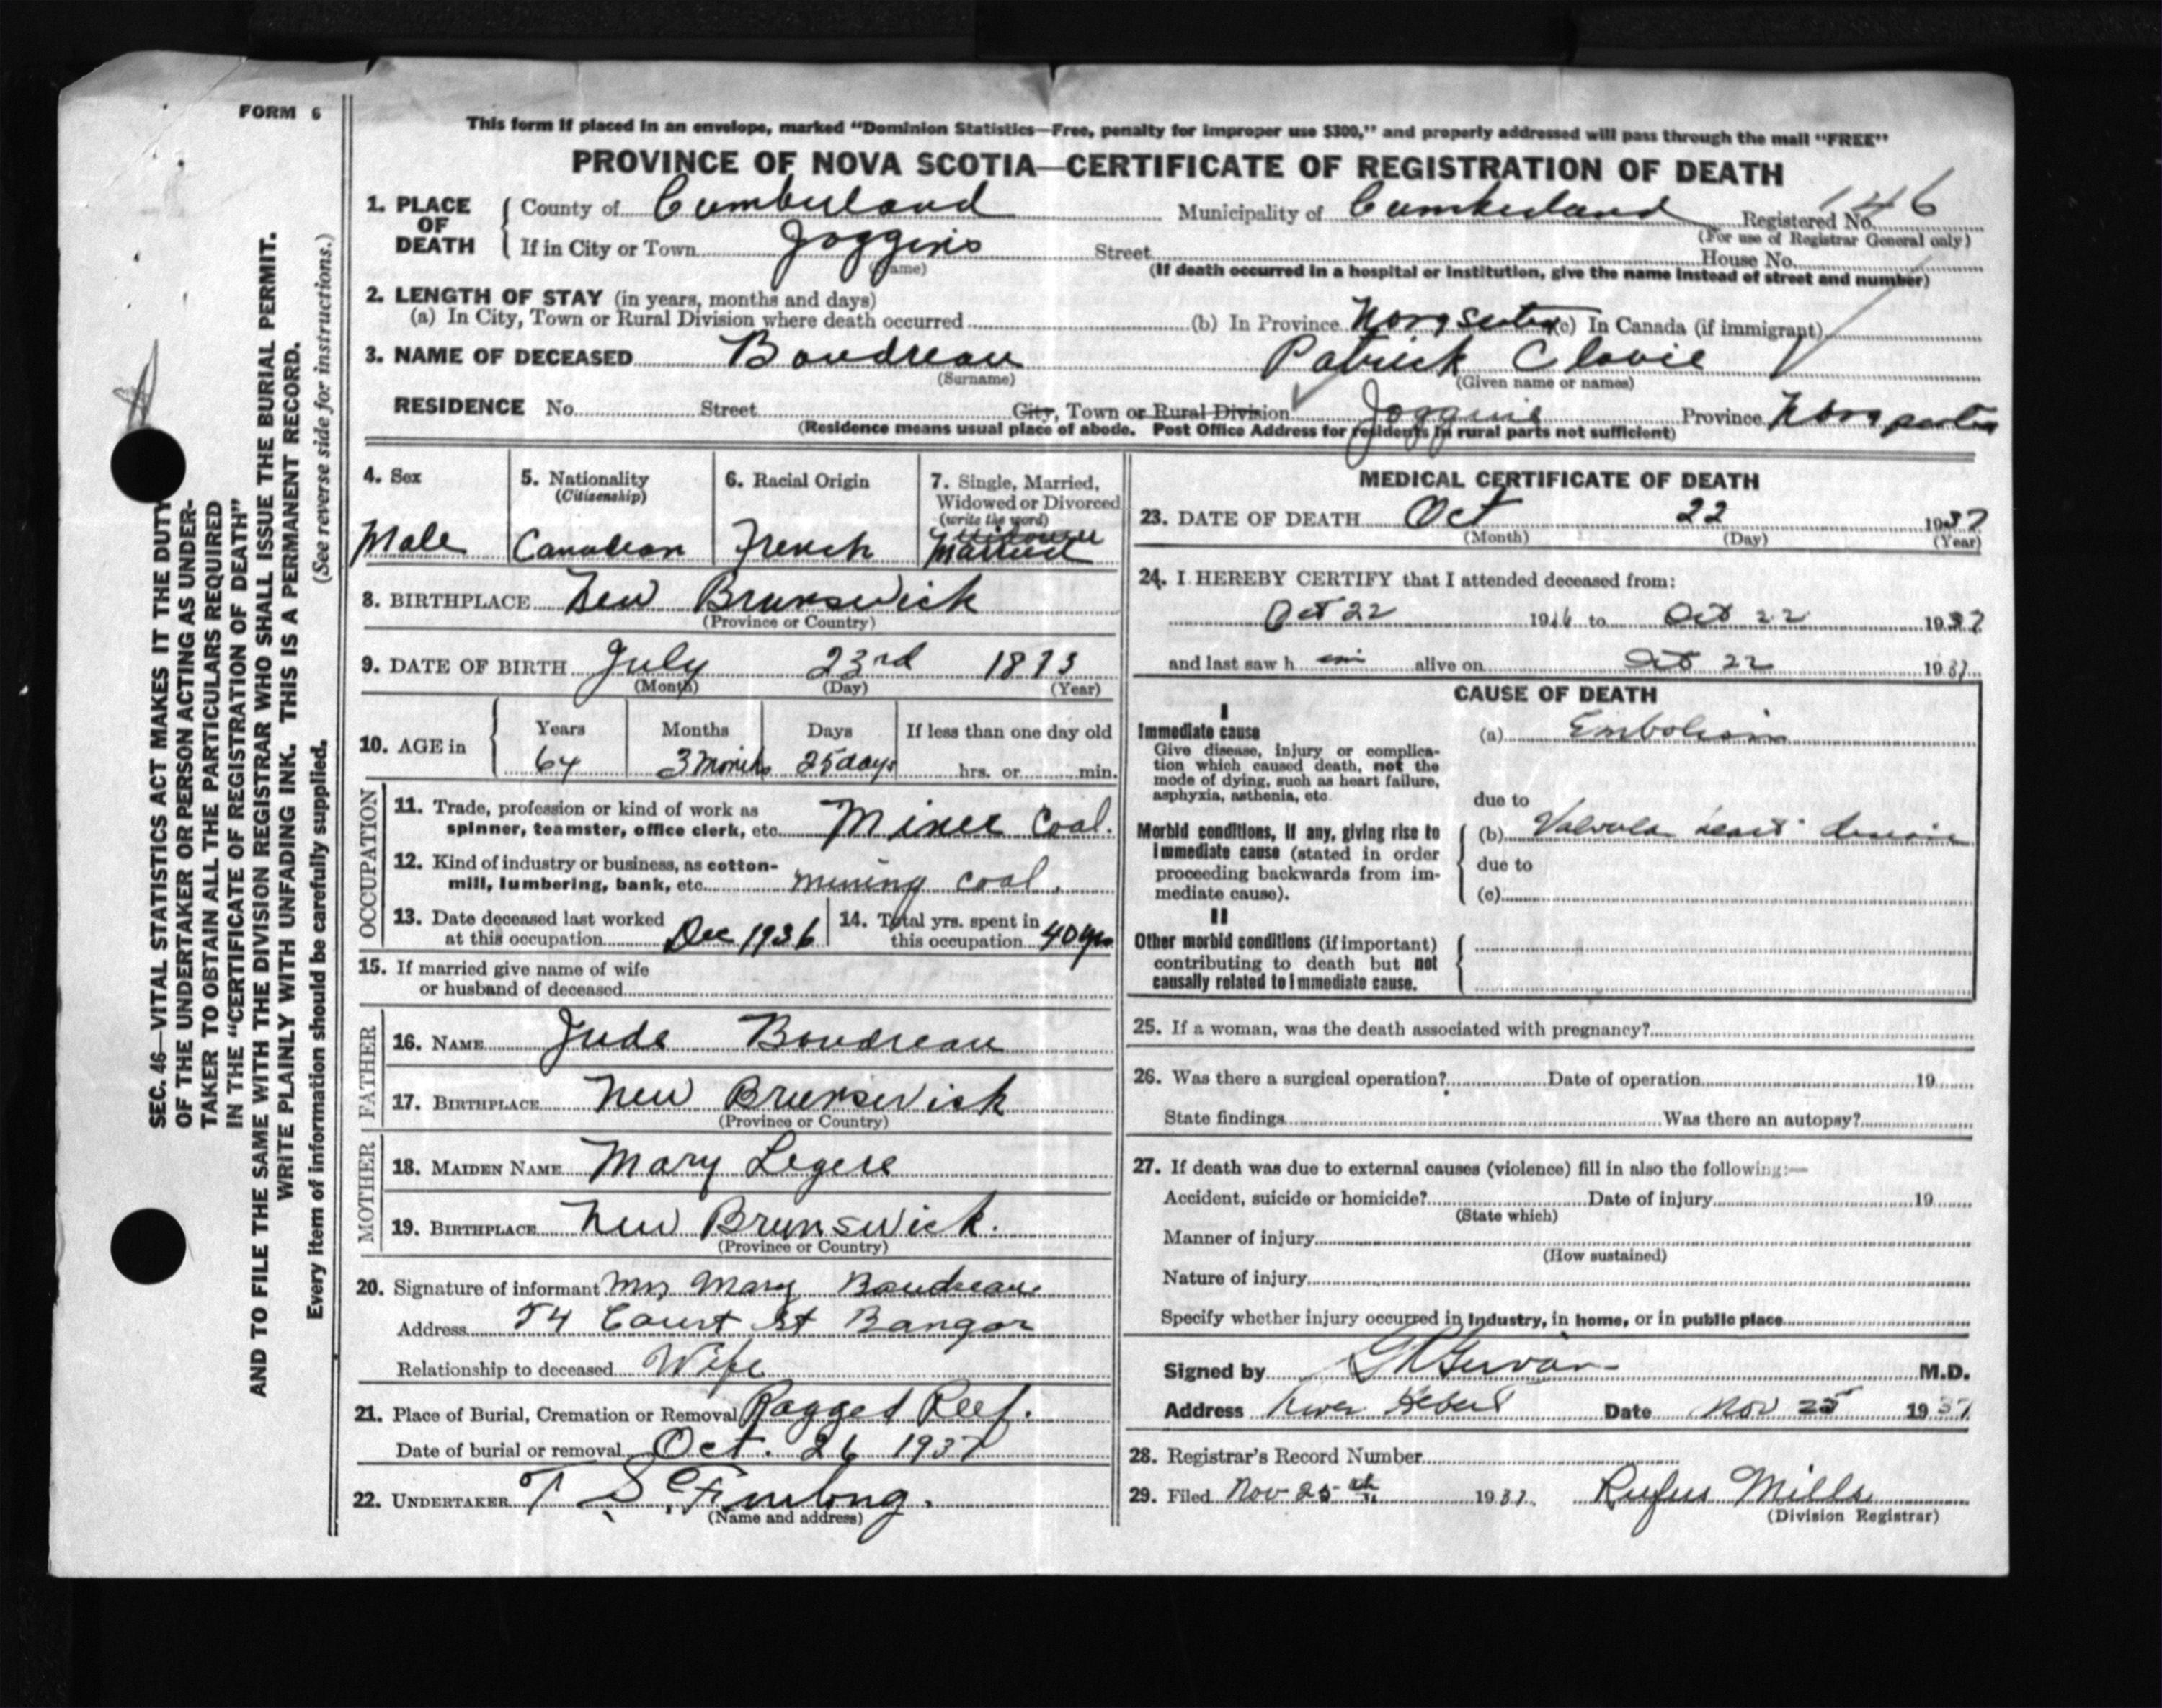 FORM 6
This form if placed in an envelope, marked "Dominion Statistics—Free, penalty for improper use $300," and properly addressed will pass through the mail "FREE"
PROVINCE OF NOVA SCOTIA—CERTIFICATE OF REGISTRATION OF DEATH
1. PLACE OF DEATH { County of Cumberland Municipality of Cumberland Registered No. 146
(For use of Registrar General only)
If in City or Town Joggins Street House No.
(Name) (If death occurred in a hospital or institution, give the name instead of street and number)
2. LENGTH OF STAY (in years, months and days)
(a) In City, Town or Rural Division where death occurred (b) In Province Nova Scotia (c) In Canada (if immigrant)
3. NAME OF DECEASED Boudreau Patrick Clovie
(Surname) (Given name or names)
RESIDENCE No. Street City, Town or Rural Division Joggins Province Nova Scotia
(Residence means usual place of abode. Post Office Address for residents in rural parts not sufficient)
4. Sex 5. Nationality (Citizenship) 6. Racial Origin 7. Single, Married, Widowed or Divorced (write the word)
Male Canadian French Married
8. BIRTHPLACE New Brunswick
(Province or Country)
9. DATE OF BIRTH July 23rd 1873
(Month) (Day) (Year)
10. AGE in { Years Months Days If less than one day old
64 3 Months 25 days hrs. or min.
OCCUPATION
11. Trade, profession or kind of work as
spinner, teamster, office clerk, etc. Miner Coal.
12. Kind of industry or business, as cotton-
mill, lumbering, bank, etc. mining coal.
13. Date deceased last worked
at this occupation Dec 1936
14. Total yrs. spent in
this occupation 40 yrs
15. If married give name of wife
or husband of deceased
FATHER
16. NAME Jude Boudreau
17. BIRTHPLACE New Brunswick
(Province or Country)
MOTHER
18. MAIDEN NAME Mary Legere
19. BIRTHPLACE New Brunswick.
(Province or Country)
20. Signature of informant Mrs Mary Boudreau
Address 54 Court St Bangor
Relationship to deceased Wife
21. Place of Burial, Cremation or Removal Ragged Reef.
Date of burial or removal Oct. 26 1937
22. UNDERTAKER T S Furlong.
(Name and address)
MEDICAL CERTIFICATE OF DEATH
23. DATE OF DEATH Oct 22 1937
(Month) (Day) (Year)
24. I HEREBY CERTIFY that I attended deceased from:
Oct 22 1936 to Oct 22 1937
and last saw him alive on Oct 22 1937
CAUSE OF DEATH
I
Immediate cause
Give disease, injury or complica-
tion which caused death, not the
mode of dying, such as heart failure,
asphyxia, asthenia, etc.
(a) Embolism
due to
Morbid conditions, if any, giving rise to
immediate cause (stated in order
proceeding backwards from im-
mediate cause).
(b) Valvula heart disease
due to
(c)
II
Other morbid conditions (if important)
contributing to death but not
causally related to immediate cause.
25. If a woman, was the death associated with pregnancy?
26. Was there a surgical operation? Date of operation 19
State findings Was there an autopsy?
27. If death was due to external causes (violence) fill in also the following:—
Accident, suicide or homicide? Date of injury 19
(State which)
Manner of injury
(How sustained)
Nature of injury
Specify whether injury occurred in industry, in home, or in public place
Signed by M.D.
Address River Hebert Date Nov 25 1937
28. Registrar's Record Number
29. Filed Nov 25th 1937. Rufus Mills
(Division Registrar)
SEC. 46—VITAL STATISTICS ACT MAKES IT THE DUTY
OF THE UNDERTAKER OR PERSON ACTING AS UNDER-
TAKER TO OBTAIN ALL THE PARTICULARS REQUIRED
IN THE "CERTIFICATE OF REGISTRATION OF DEATH"
AND TO FILE THE SAME WITH THE DIVISION REGISTRAR WHO SHALL ISSUE THE BURIAL PERMIT.
WRITE PLAINLY WITH UNFADING INK. THIS IS A PERMANENT RECORD.
Every item of information should be carefully supplied. (See reverse side for instructions.)